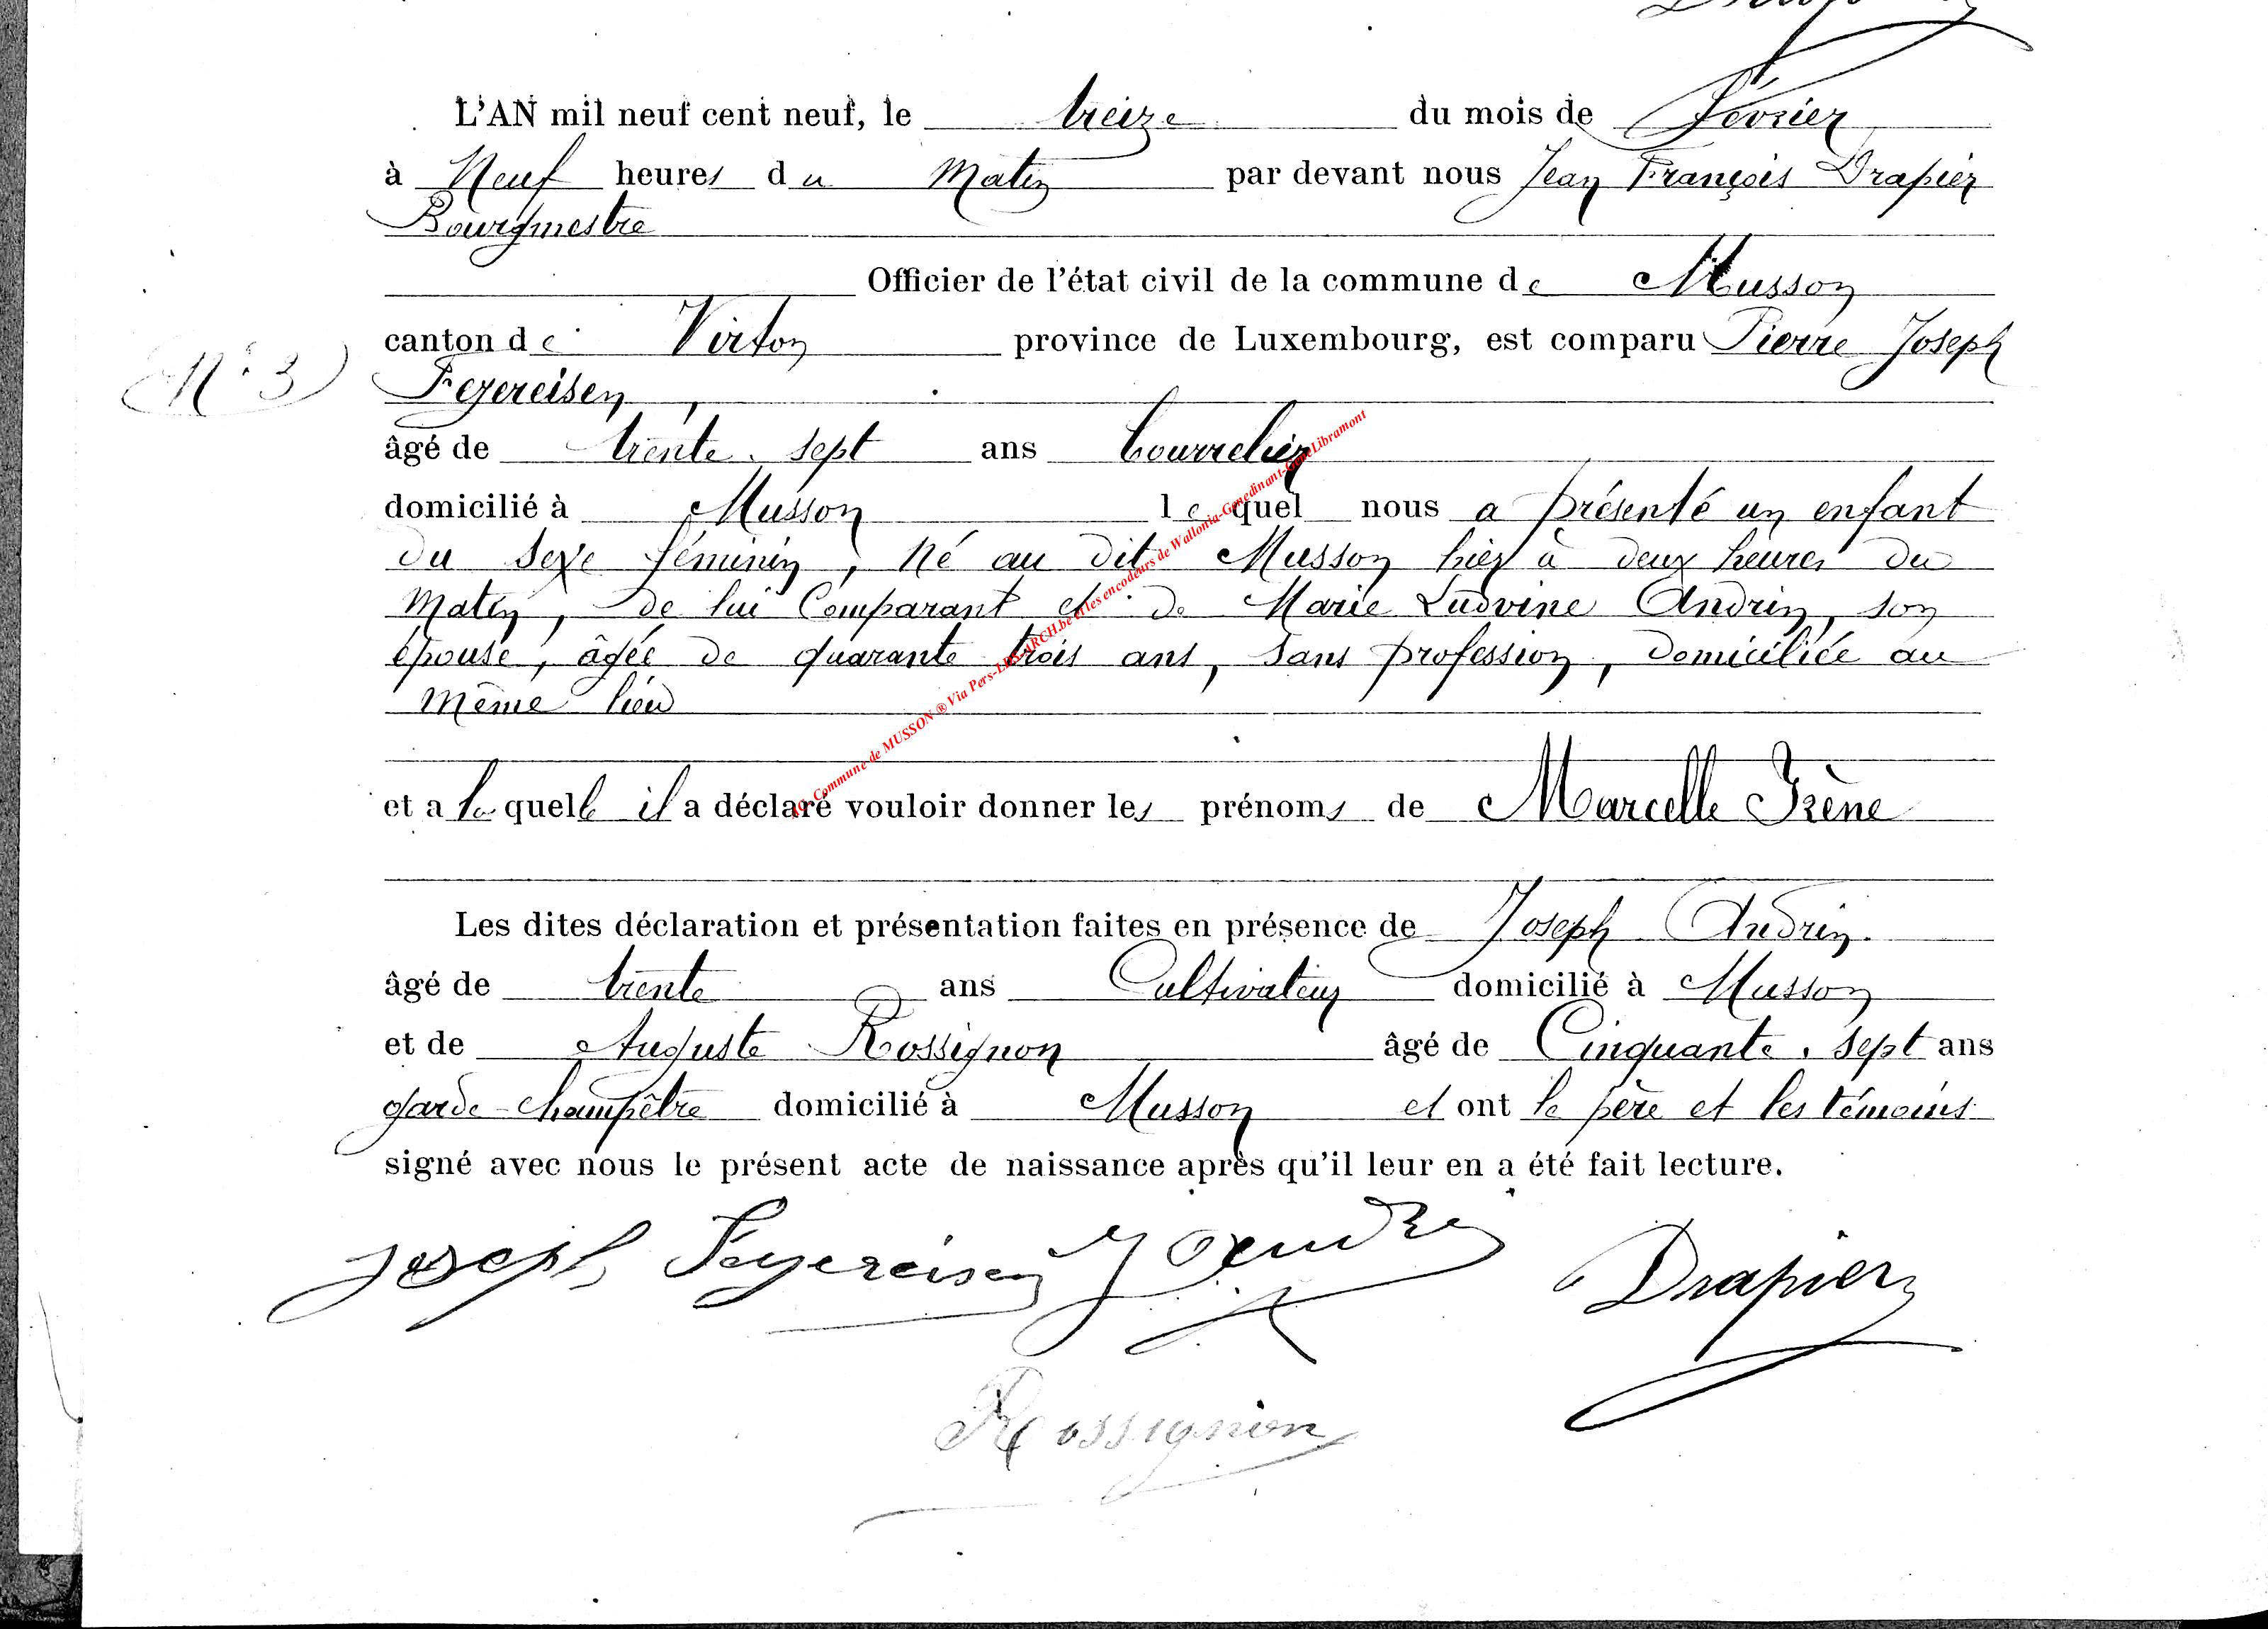 L'AN mil neuf cent neuf, le treize du mois de Février
à Neuf heures du Matin par devant nous Jean François Drapier
Bourgmestre
Officier de l'état civil de la commune de Musson
canton de Virton province de Luxembourg, est comparu Pierre Joseph
N° 3
Feyereisen,
âgé de trente-sept ans bourrelier
domicilié à Musson lequel nous a présenté un enfant
du sexe féminin, né au dit Musson hier à deux heures du
matin, de lui Comparant et de Marie Ludvine Andrin, son
épouse, âgée de quarante trois ans, sans profession, domiciliée au
même lieu
et a laquelle il a déclaré vouloir donner les prénoms de Marcelle Irène
Les dites déclaration et présentation faites en présence de Joseph Andrin.
âgé de trente ans Cultivateur domicilié à Musson
et de Auguste Rossignon âgé de Cinquante-sept ans
garde-champêtre domicilié à Musson et ont le père et les témoins
signé avec nous le présent acte de naissance après qu'il leur en a été fait lecture.
Joseph Feyereisen J Andrin Drapier
Rossignon
Commune de MUSSON ® Via Pers-LES-ARCH.be et les encodeurs de Wallonia-Genedinant-GeneLibramont